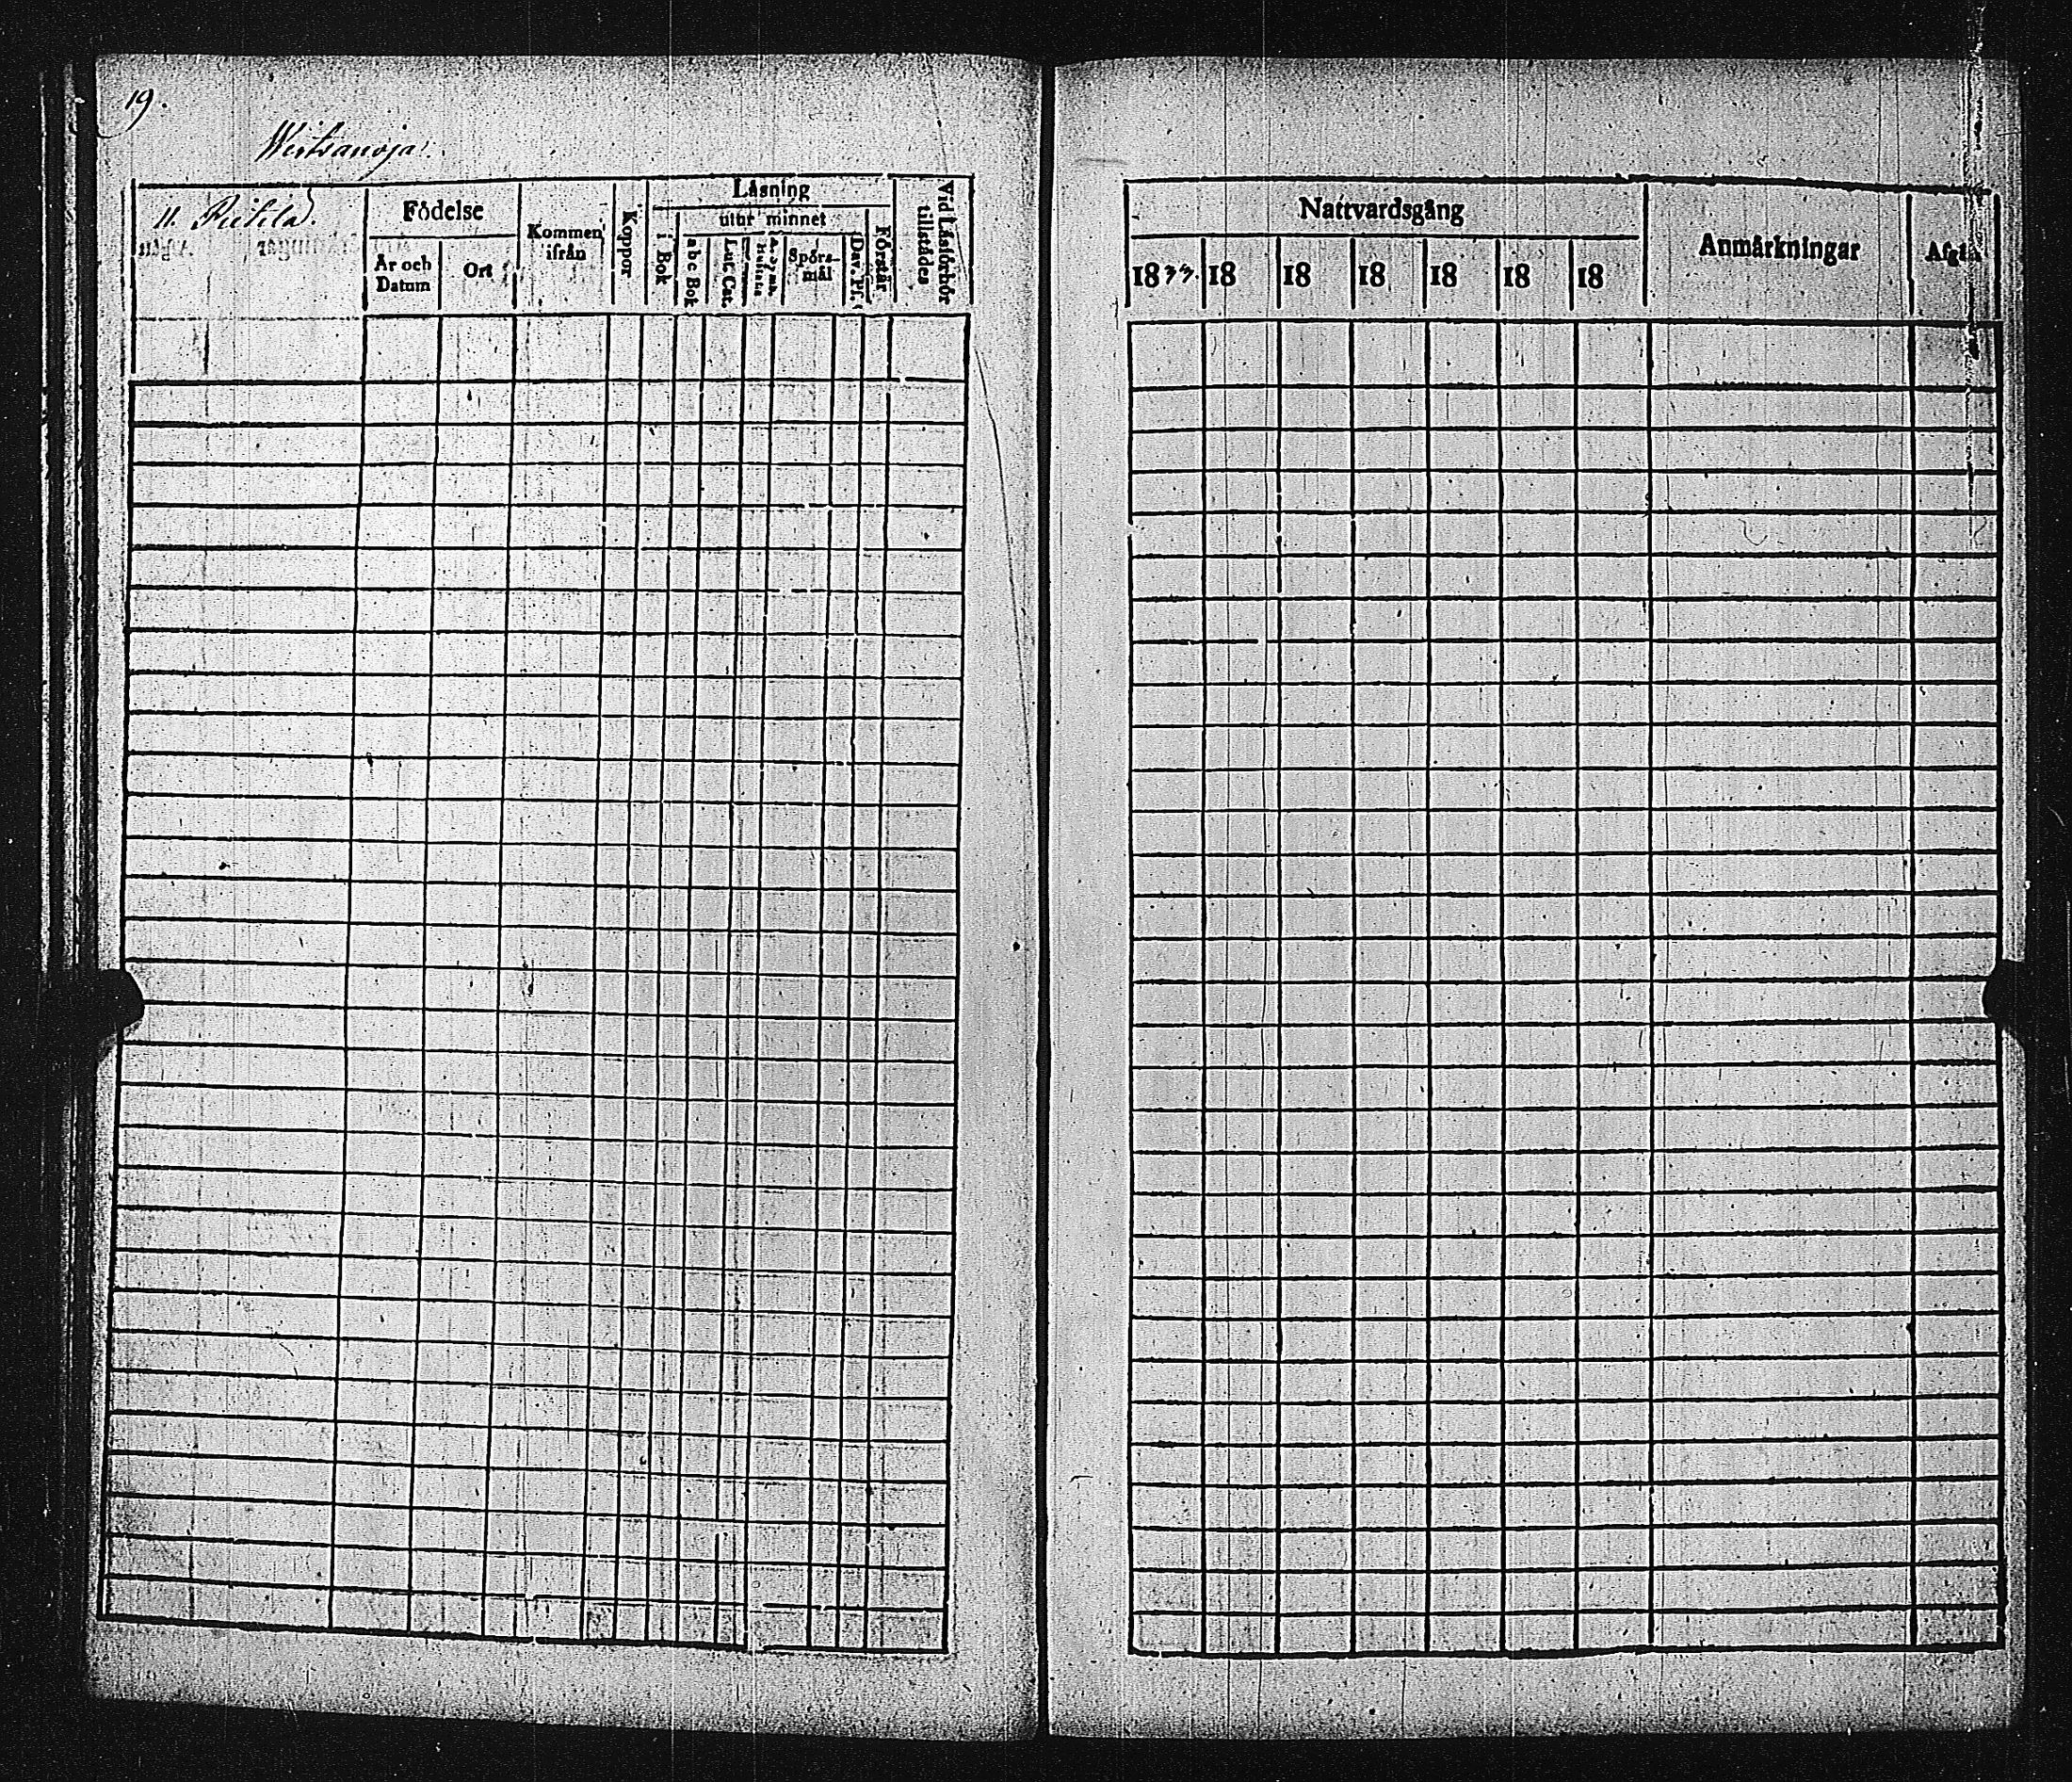 19.
Wirtsanoja.
11. Rekola.
Födelse
År och Datum
Ort
Kommen ifrån
Koppor
Läsning
i Bok
utur minnet
abc Bok
Lut. Cat.
Spörs-mål
Dav. Ps.
Förstår
Vid Läsförhör tillstädes
Nattvardsgång
1833. 18 18 18 18 18 18
Anmärkningar